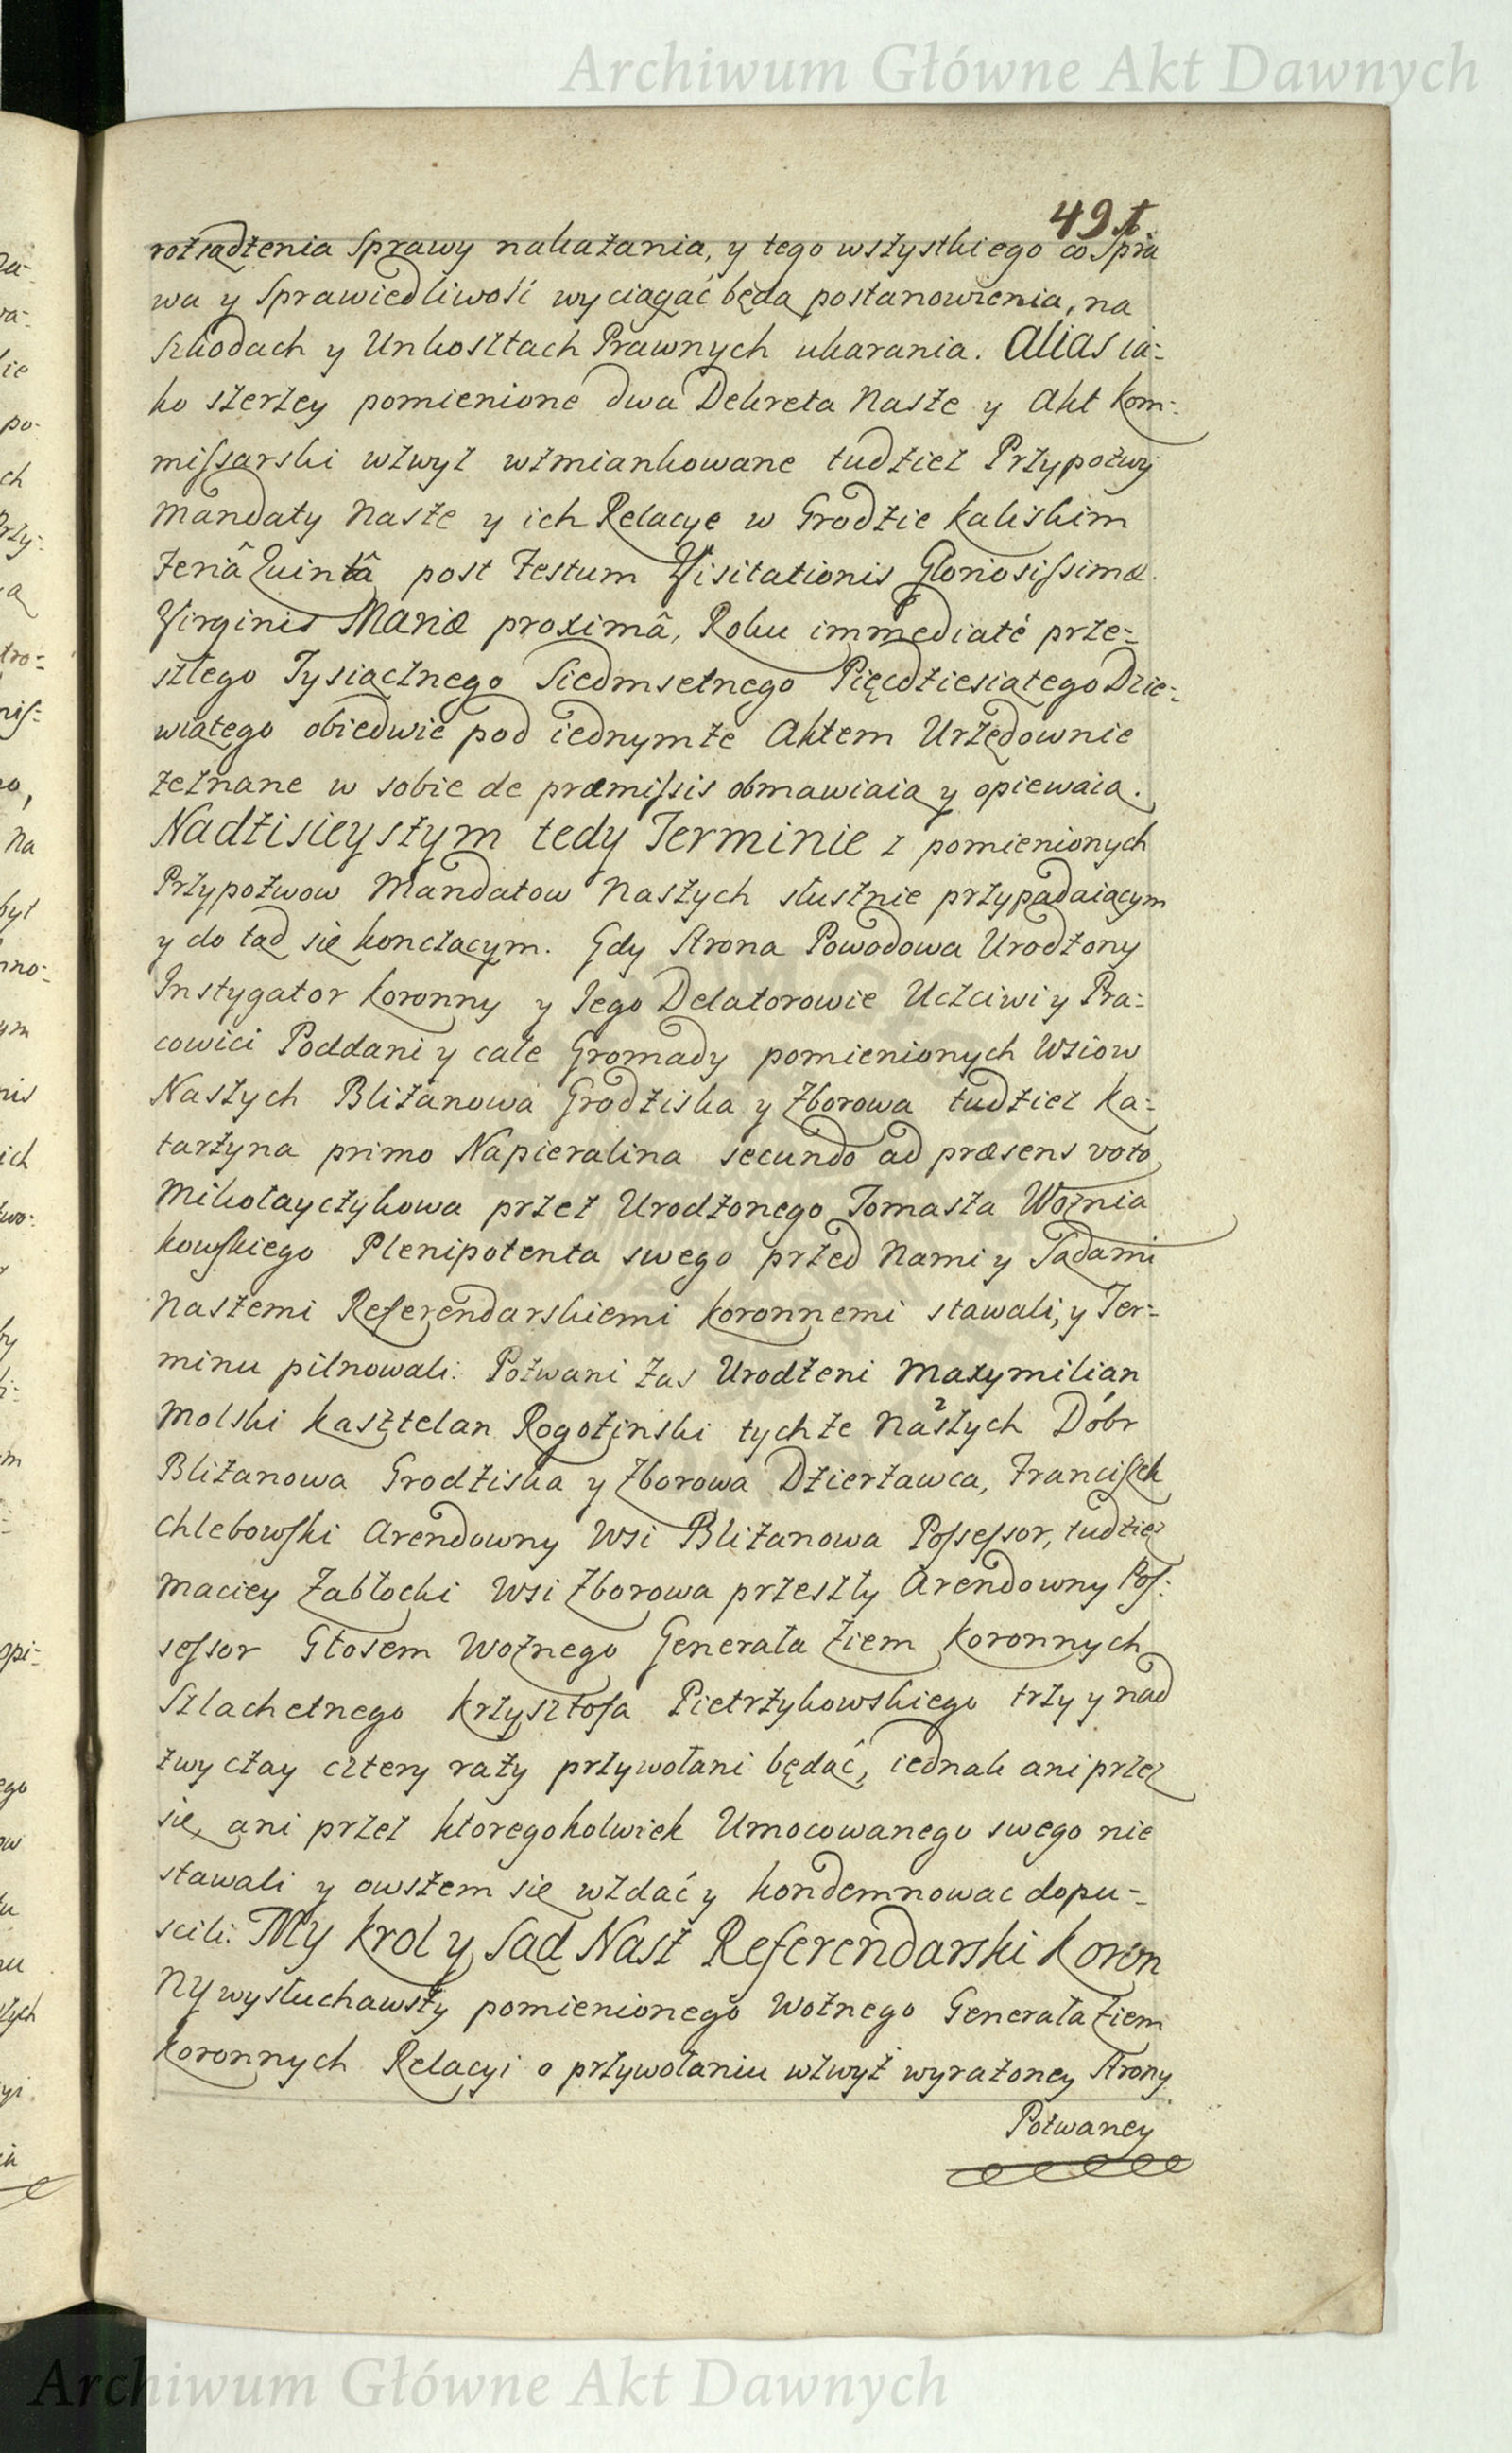 Archiwum Główne Akt Dawnych
49
rozsądzenia Sprawy nakazania, y tego wszystkiego co Spra
wa y Sprawiedliwość wyciągać będą postanowienia, na
Szkodach y Unkosztach Prawnych ukarania. Alias ia-
ko szerzey pomienione dwa Dekreta Nasze y Akt Kom-
missarski wzwyz wzmiankowane tudziez Przypozwy
Mandaty Nasze y ich Relacye w Grodzie Kaliskim
Feriâ Quintâ post Festum Visitationis Gloriosissimæ
Virginis Mariæ proximâ, Roku immediaté prze-
szłego Tysiącznego Siedmsetnego Pięcdziesiątego Dzie-
wiątego obiedwie pod iednymze Aktem Urzędownie
zeznane w sobie de præmissis obmawiaią y opiewaią.
Nadzisieyszym tedy Terminie z pomienionych
Przypozwow Mandatow Naszych słusznie przypadaiącym
y do tąd się konczącym. Gdy Strona Powodowa Urodzony
Instygator Koronny y Iego Delatorowie Uczciwi y Pra-
cowici Poddani y całe Gromady pomienionych Wsiow
Naszych Blizanowa Grodziska y Zborowa tudziez Ka-
tarzyna primo Napieralina secundo ad præsens voto
Mikołayczykowa przez Urodzonego Tomasza Woznia
kowskiego Plenipotenta swego przed Nami y Sądami
Naszemi Referendarskiemi Koronnemi stawali, y Ter-
minu pilnowali: Pozwani zas Urodzeni Maxymilián
Molski Kasztelan Rogozinski tychze Naszych Dóbr
Blizanowa Grodziska y Zborowa Dzierzawca, Franciszek
Chlebowski Arendowny Wsi Blizanowa Possessor, tudziez
Maciey Zabłocki Wsi Zborowa przeszły Arendowny Pos-
sessor Głosem Woznego Generała Ziem Koronnych
Szlachetnego Krzysztofa Pietrzykowskiego trzy y nad
zwyczay cztery razy przywołani będąć, iednak ani przez
się, ani przez ktoregokolwiek Umocowanego swego nie
stawali y owszem się wzdać y kondemnowac dopu-
scili: My Krol y Sąd Nasz Referendarski Koron
ny wysłuchawszy pomienionego Woznego Generała Ziem
Koronnych Relacyi o przywołaniu wzwyż wyrazoney Strony
Pozwaney
Archiwum Główne Akt Dawnych